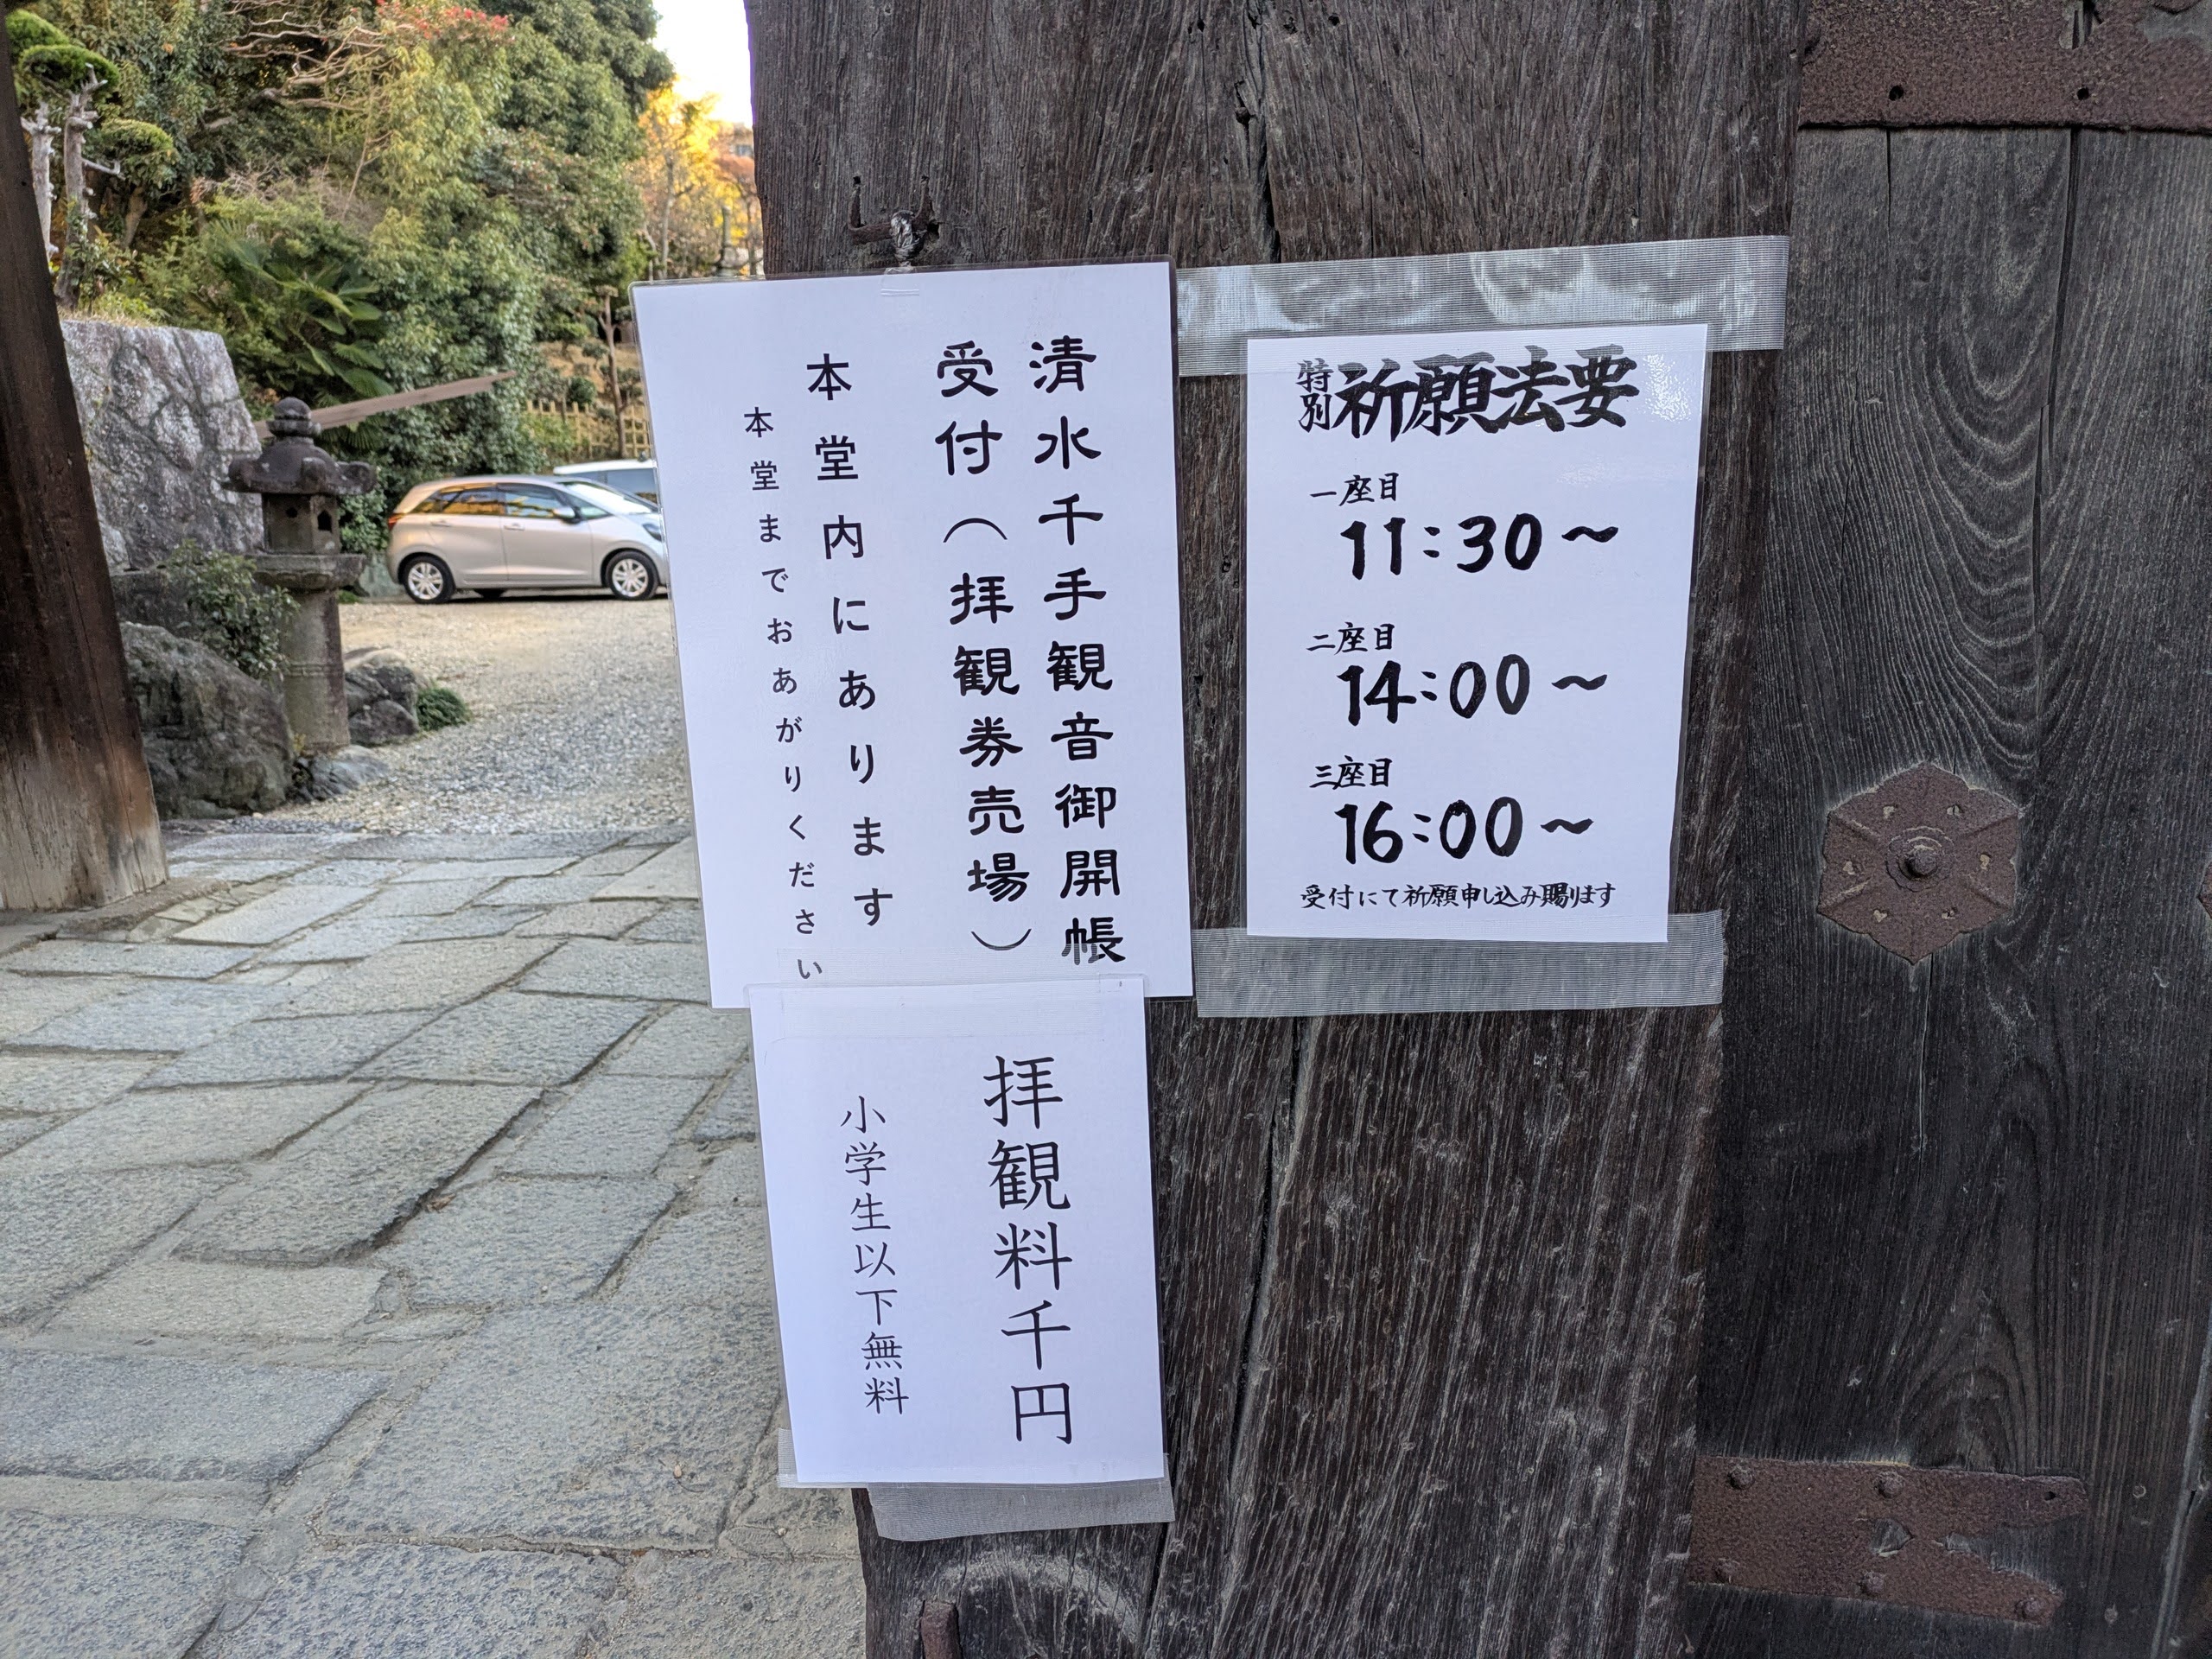 清水千手観音御開帳
受付（拝観券売場）
本堂内にあります
本堂までおあがりください
拝観料千円
小学生以下無料
特別祈願法要
一座目
11:30～
二座目
14:00～
三座目
16:00～
受付にて祈願申し込み賜ります